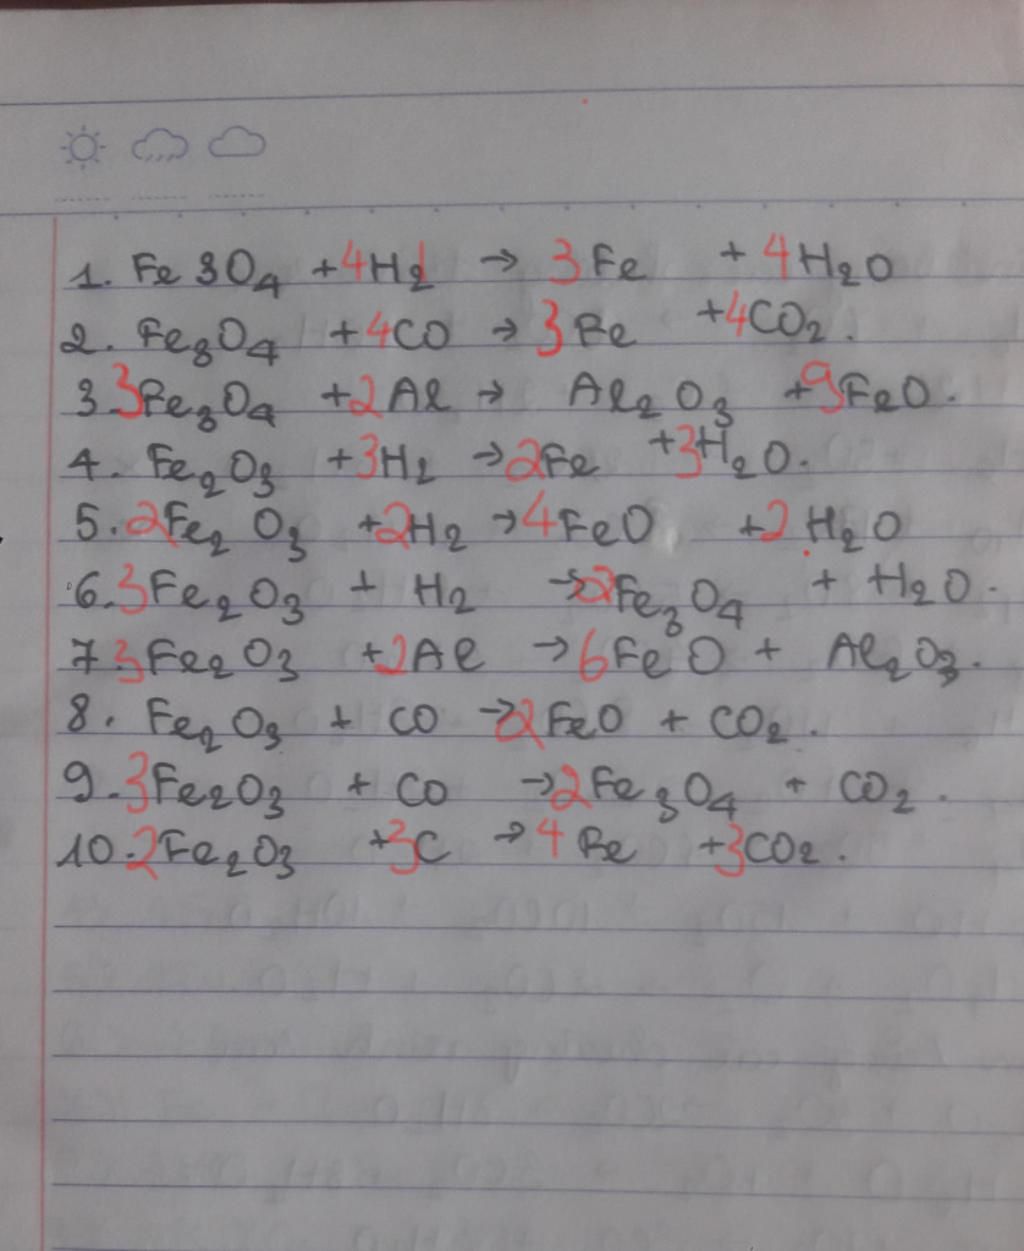 1. Fe3O4 + 4H2 → 3Fe + 4H2O
2. Fe3O4 + 4CO → 3Fe + 4CO2.
3 3Fe3O4 + 2Al → Al2O3 + 9FeO.
4. Fe2O3 + 3H2 → 2Fe + 3H2O.
5. 2Fe2O3 + 2H2 → 4FeO + 2H2O
6. 3Fe2O3 + H2 → 2Fe3O4 + H2O.
7 3Fe2O3 + 2Al → 6FeO + Al2O3.
8. Fe2O3 + CO → 2FeO + CO2.
9. 3Fe2O3 + CO → 2Fe3O4 + CO2.
10. 2Fe2O3 + 3C → 4Fe + 3CO2.